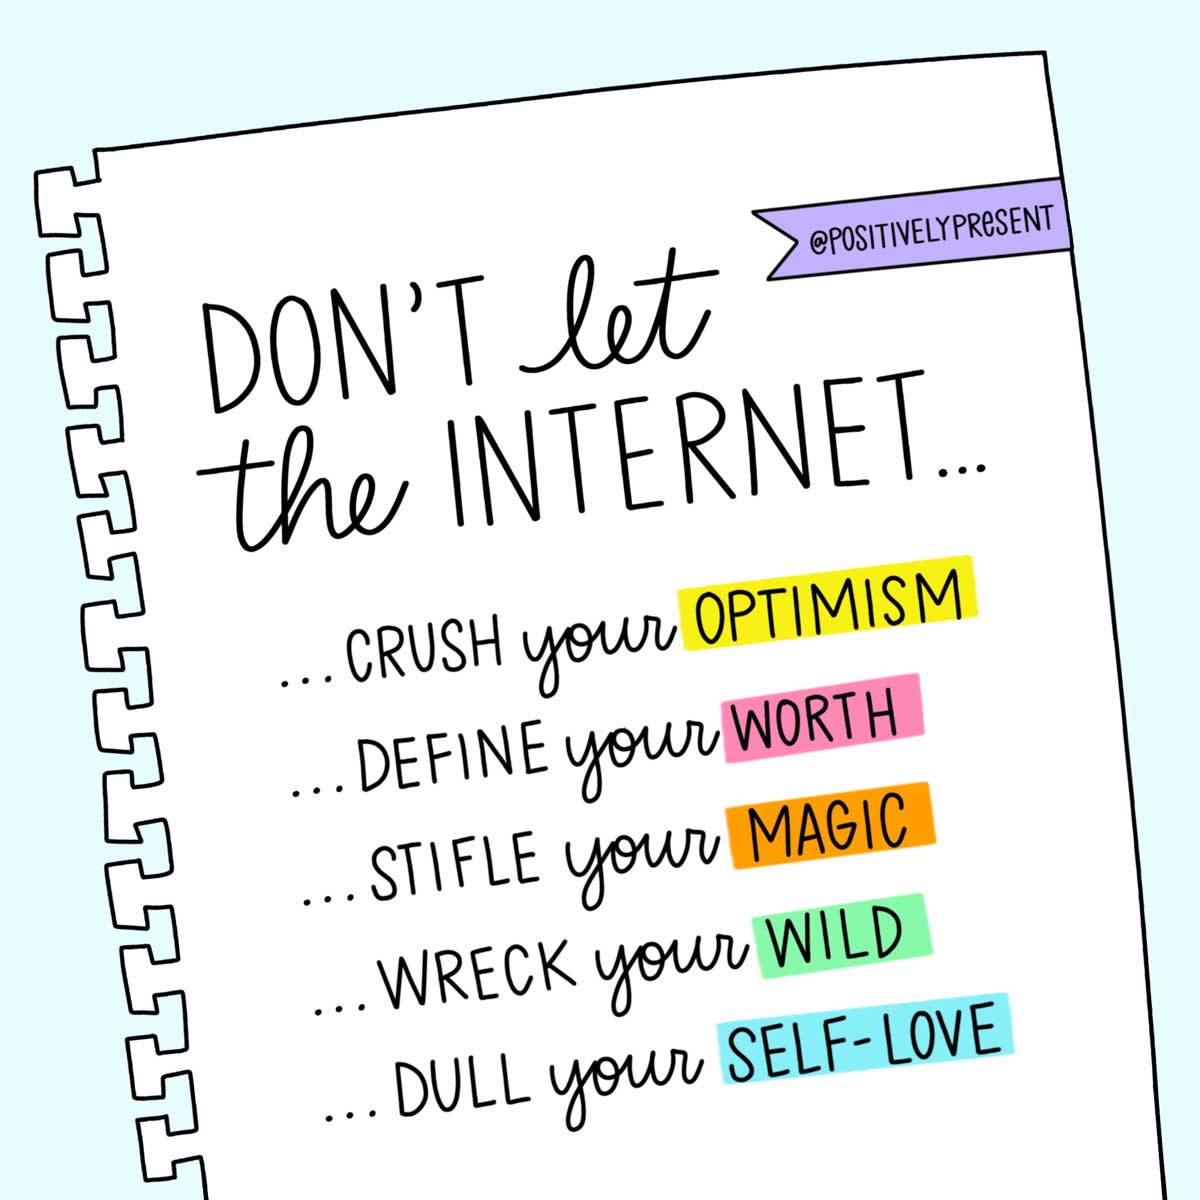 @POSITIVELYPRESENT
DON'T let
the INTERNET...
...CRUSH your OPTIMISM
...DEFINE your WORTH
...STIFLE your MAGIC
...WRECK your WILD
...DULL your SELF-LOVE